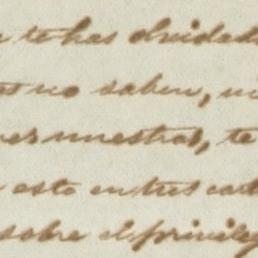 te has olvidad
no saben, ni
nuestras, te
esto en tres cart
sobre el privileg